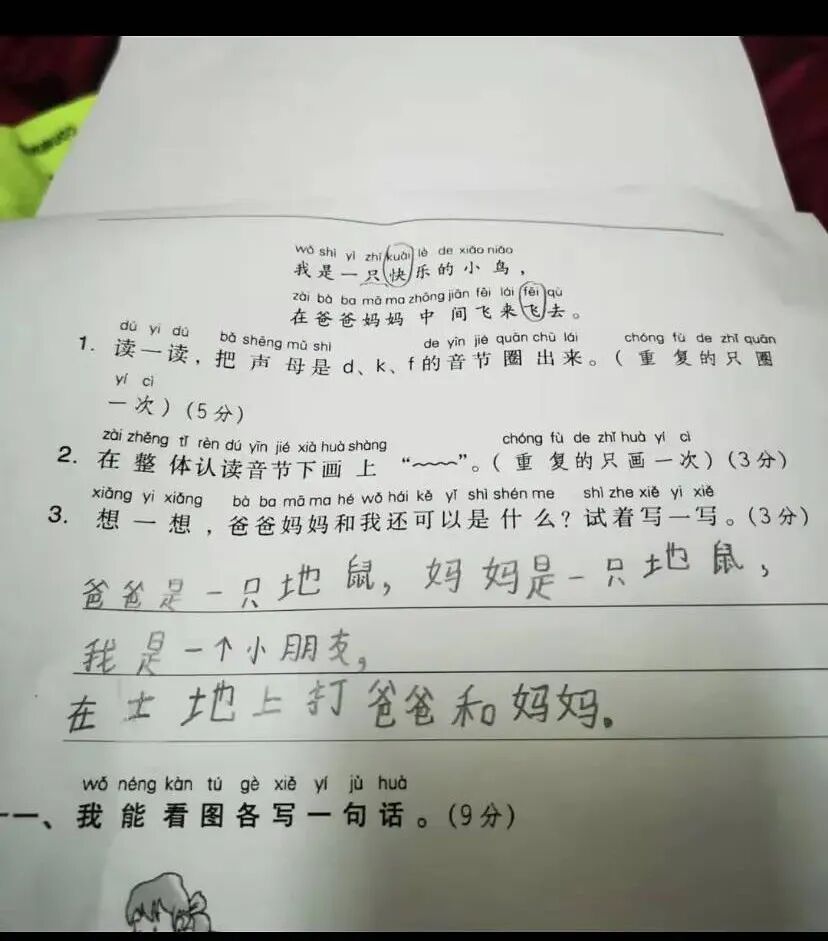 wǒ shì yì zhī kuài lè de xiǎo niǎo
我是一只快乐的小鸟，
zài bà ba mā ma zhōng jiān fēi lái fēi qù
在爸爸妈妈中间飞来飞去。
dú yi dú bǎ shēng mǔ shì de yīn jié quān chū lái chóng fù de zhǐ quān
1. 读一读，把声母是 d、k、f 的音节圈出来。（重复的只圈
yí cì
一次）(5分)
zài zhěng tǐ rèn dú yīn jié xià huà shàng chóng fù de zhǐ huà yí cì
2. 在整体认读音节下画上“﹏﹏”。（重复的只画一次）(3分)
xiǎng yi xiǎng bà ba mā ma hé wǒ hái kě yǐ shì shén me shì zhe xiě yi xiě
3. 想一想，爸爸妈妈和我还可以是什么？试着写一写。(3分)
爸爸是一只地鼠，妈妈是一只地鼠，
我是一个小朋友，
在土地上打爸爸和妈妈。
wǒ néng kàn tú gè xiě yí jù huà
一、我能看图各写一句话。(9分)